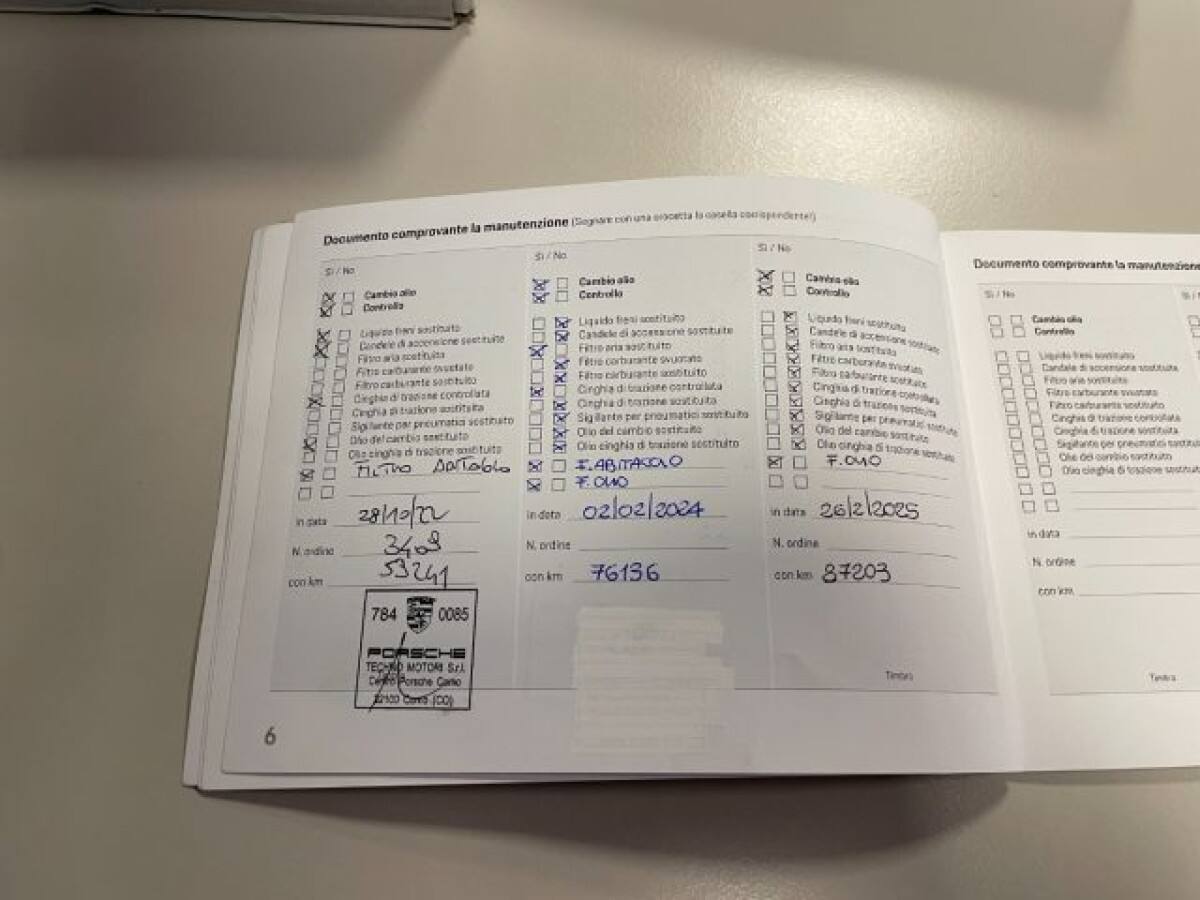 Documento comprovante la manutenzione (Segnare con una crocetta la casella corrispondente!)
Sì / No
Cambio olio
Controllo
Liquido freni sostituito
Candele di accensione sostituite
Filtro aria sostituito
Filtro carburante svuotato
Filtro carburante sostituito
Cinghia di trazione controllata
Cinghia di trazione sostituita
Sigillante per pneumatici sostituito
Olio del cambio sostituito
Olio cinghia di trazione sostituito
FILTRO
in data 28/10/22
N. ordine 3409
con km 53241
784 0085
PORSCHE
TECHNO MOTORI S.r.l.
Centro Porsche Como
22100 Como (CO)
Sì / No
Cambio olio
Controllo
Liquido freni sostituito
Candele di accensione sostituite
Filtro aria sostituito
Filtro carburante svuotato
Filtro carburante sostituito
Cinghia di trazione controllata
Cinghia di trazione sostituita
Sigillante per pneumatici sostituito
Olio del cambio sostituito
Olio cinghia di trazione sostituito
F. ABITACOLO
F. OLIO
in data 02/02/2024
N. ordine
con km 76136
Sì / No
Cambio olio
Controllo
Liquido freni sostituito
Candele di accensione sostituite
Filtro aria sostituito
Filtro carburante svuotato
Filtro carburante sostituito
Cinghia di trazione controllata
Cinghia di trazione sostituita
Sigillante per pneumatici sostituito
Olio del cambio sostituito
Olio cinghia di trazione sostituito
F. OLIO
in data 26/2/2025
N. ordine
con km 87203
Timbro
6
Documento comprovante la manutenzione
Sì / No
Cambio olio
Controllo
Liquido freni sostituito
Candele di accensione sostituite
Filtro aria sostituito
Filtro carburante svuotato
Filtro carburante sostituito
Cinghia di trazione controllata
Cinghia di trazione sostituita
Sigillante per pneumatici
Olio del cambio sostituito
Olio cinghia di trazione
in data
N. ordine
con km
Timbro